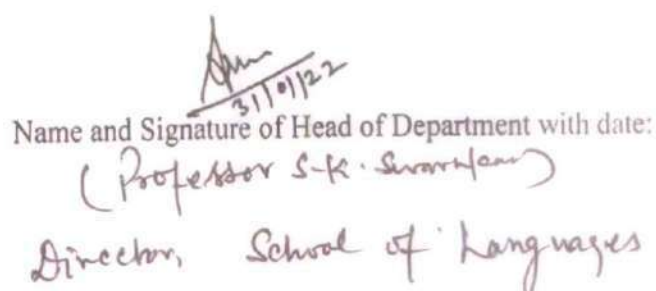 31/01/22
Name and Signature of Head of Department with date:
(Professor S.K.
Director, School of Languages